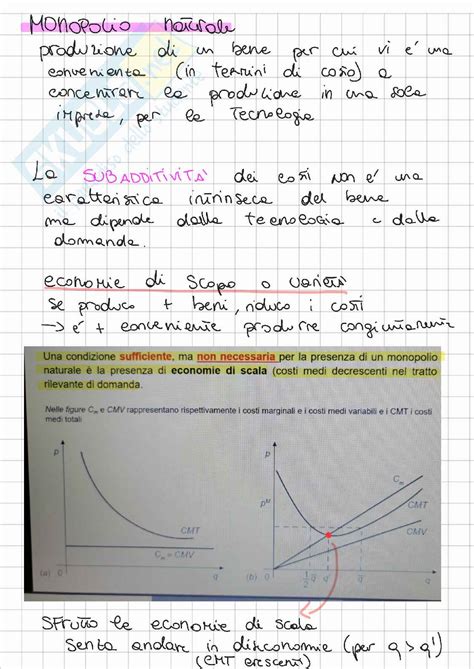 MONOPOLIO naturale
produzione di un bene per cui vi é una
convenienza (in termini di costo) a
concentrare la produzione in una sola
impresa, per la Tecnologia
La SUBADDITIVITA' dei costi non é una
caratteristica intrinseca del bene
ma dipende dalla tecnologia e dalla
domanda.
economie di scopo o varietà
se produco + beni, riduco i costi
→ é + conveniente produrre congiuntamente
Una condizione sufficiente, ma non necessaria per la presenza di un monopolio
naturale è la presenza di economie di scala (costi medi decrescenti nel tratto
rilevante di domanda.
Nelle figure Cm e CMV rappresentano rispettivamente i costi marginali e i costi medi variabili e i CMT i costi
medi totali
p
CMT
Cm = CMV
(a) 0
q
p
Cm
pM
CMT
CMV
(b) 0
q
SFrutto le economie di scala
senza andare in diseconomie (per q > q')
(CMT crescenti)